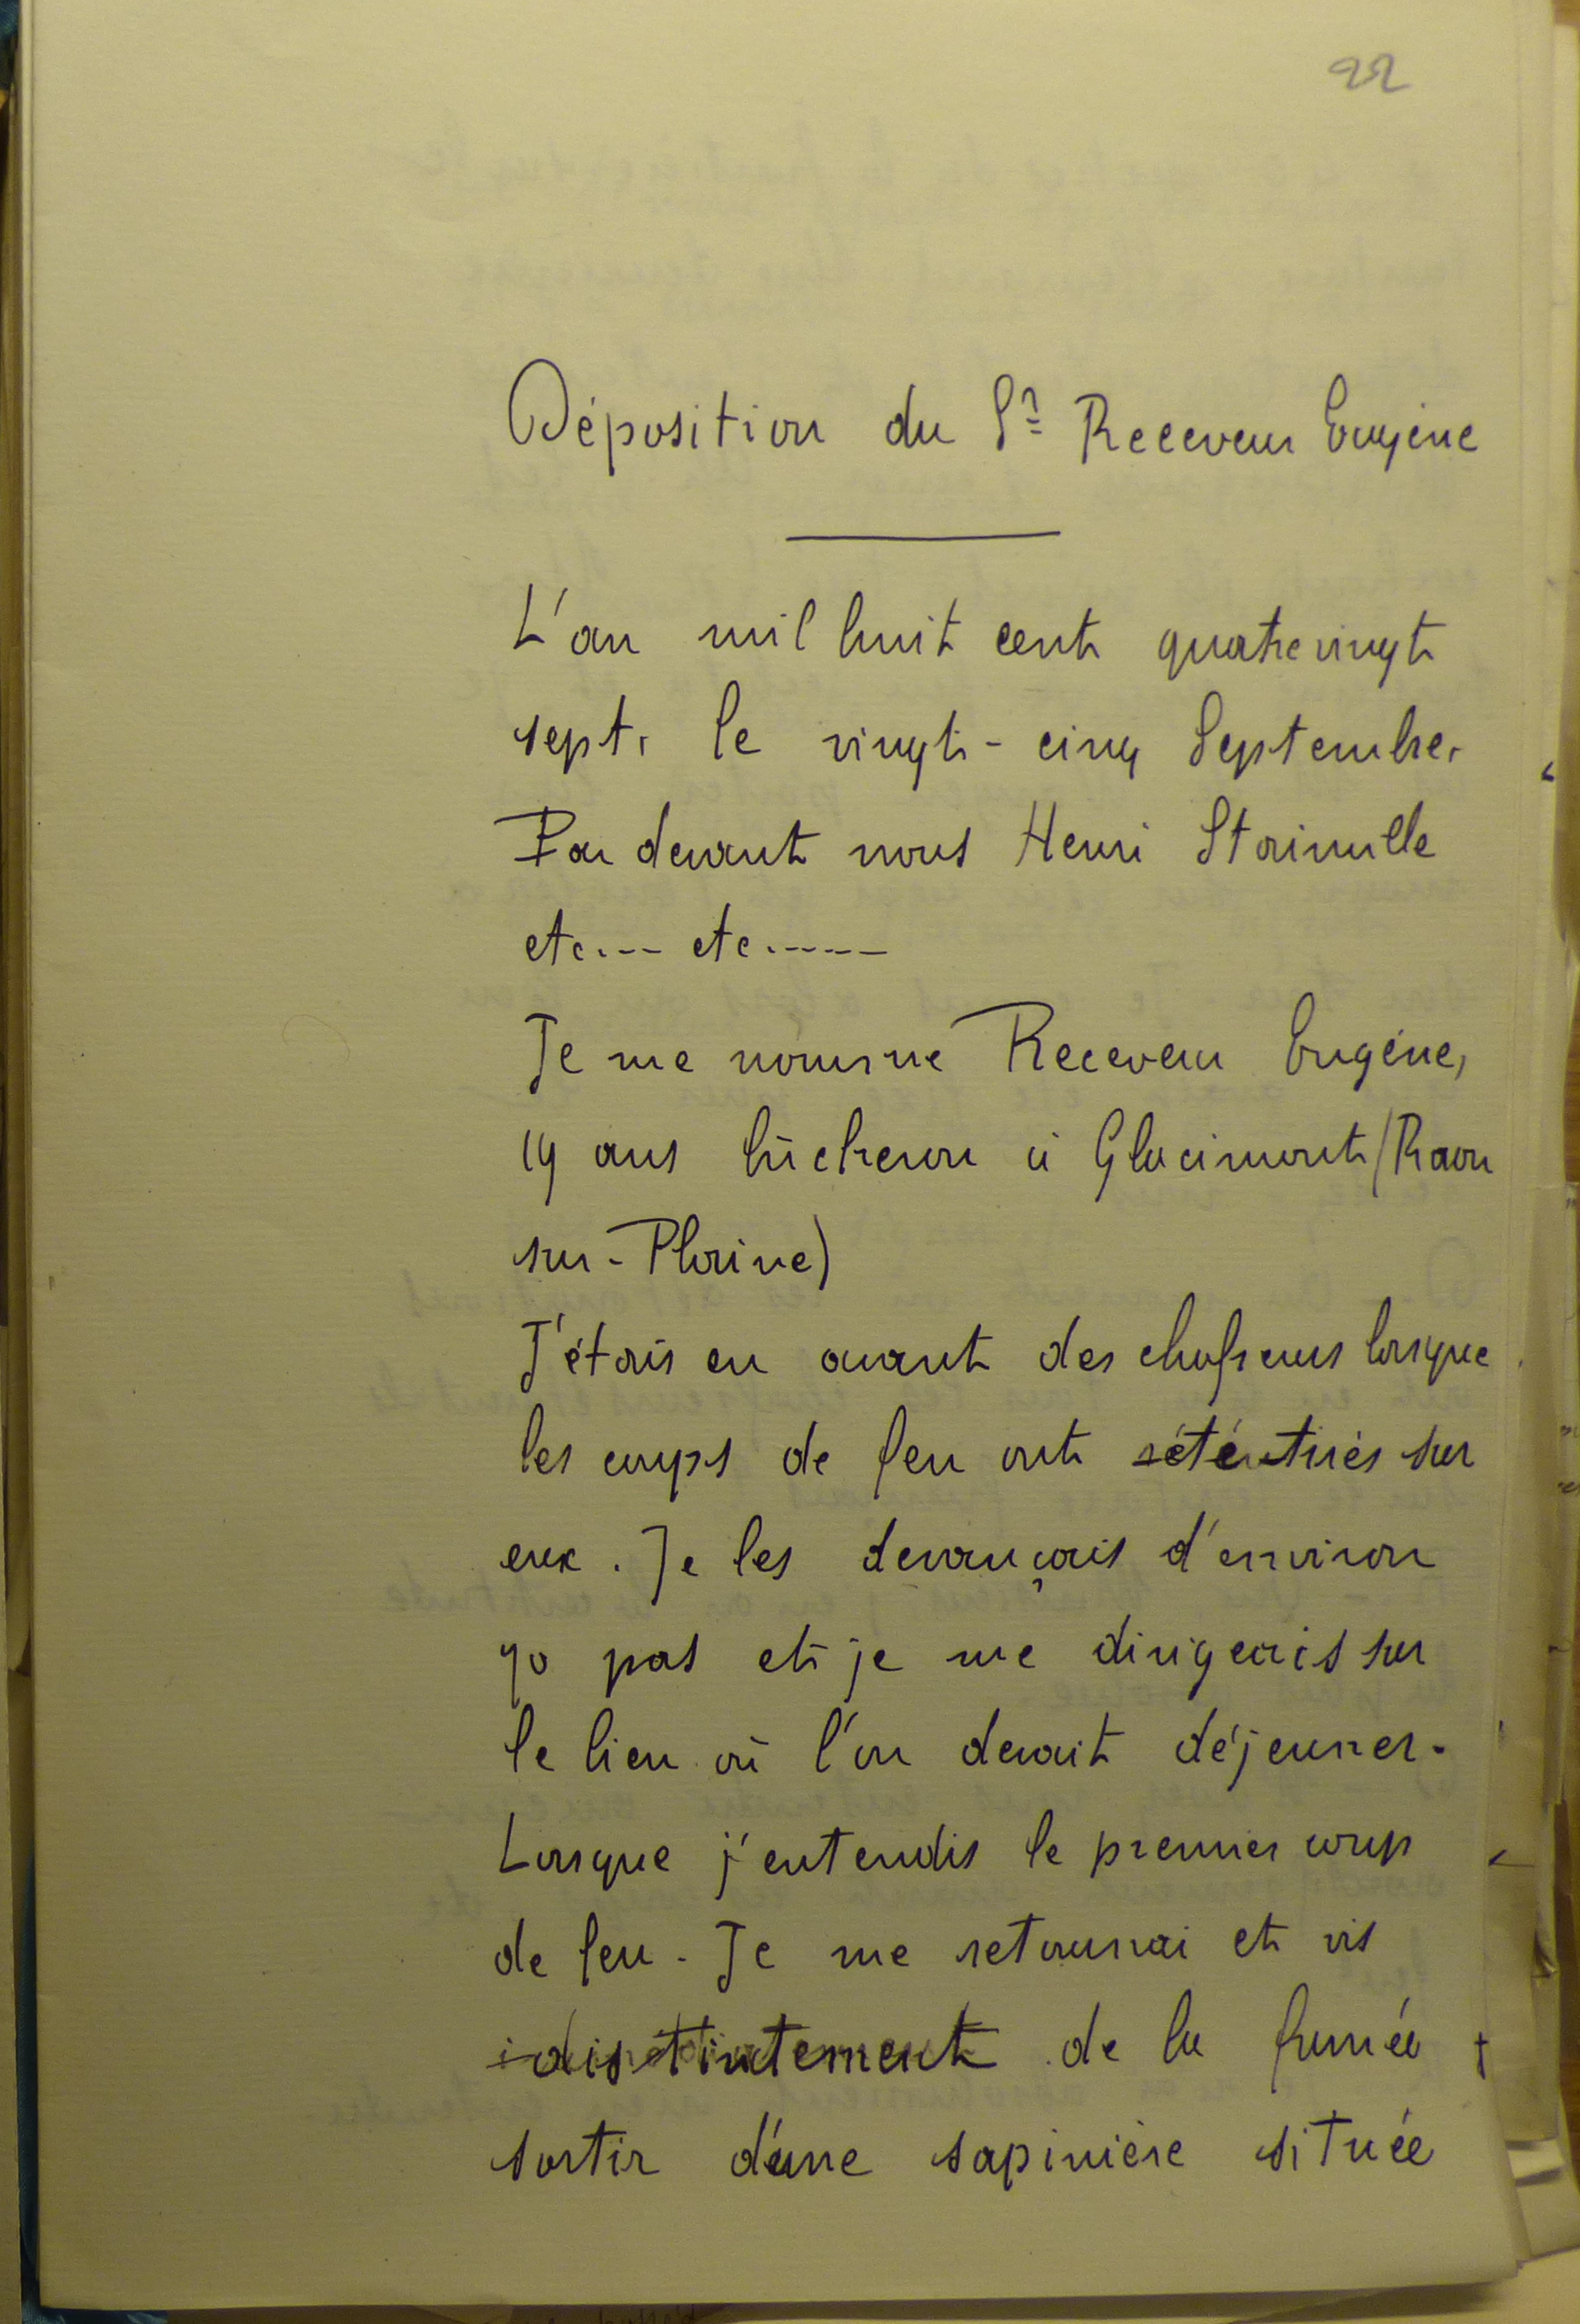 22
Déposition du Sr Receveur Eugène
L'an mil huit cent quatre vingt
sept, le vingt-cinq Septembre,
Par devant nous Henri Stainville
etc.-- etc.----
Je me nomme Receveur Eugène,
19 ans bûcheron à Glacimont (Raon
sur-Plaine)
J'étais en avant des chasseurs lorsque
les coups de feu ont été tirés sur
eux. Je les devançais d'environ
70 pas et je me dirigeais sur
le lieu où l'on devait déjeuner.
Lorsque j'entendis le premier coup
de feu. Je me retournai et vis
distintement de la fumée
sortir d'une sapinière située